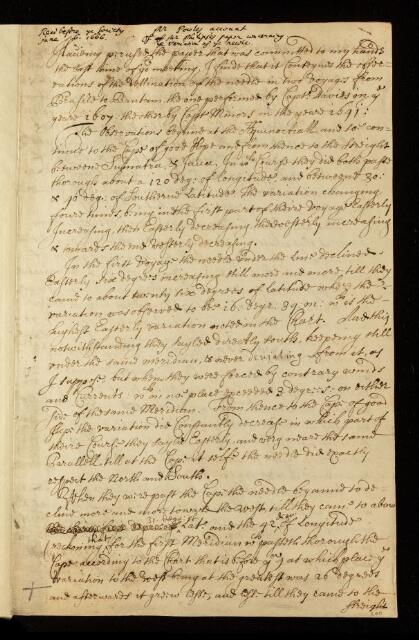 Read before ye Society
June
Mr Pooles account
of Mr Philips's paper concerning
ye variation of ye needle.
Having perused the paper that was committed to my hands
the last time of yr meeting, I finde that it conteynes the obser-
vations of the declination of the needle in two Voyages from
to Bantam, the one performed by Capt: Davies in ye
yeare 1607 the other by Capt: Minors in the yeare 1641:
The observations begine at the Æquinoctiall and soe con-
tinue to the Cape of good Hope and from thence to the Streight
betweene Sumatra, & Java. In wch course they did both passe
through about a 120 deg: of Longitude, and betweene 30:
& 40 deg: of Southerne Latitude. The variation changing
foure times, being in the first part of theire Voyage Easterly
Increasing, then Easterly decreasing then Westerly increasing
& towards the end Westerly decreasing.
In the first Voyage the needle under the line declined
Easterly six degrees increasing still more and more, till they
came to about twenty six degrees of latitude where the
variation was observed to be 16. degr. 39 m: wch is the
highest Easterly variation noted in the Chart. And this
notwithstanding they sayled directly South, keeping still
under the same meridian, & never deviating from it, as
I suppose but when they were forced by contrary winds
and Currents: wch in noe place exceeded 3 degrees: on either
side of the same Meridian. From thence to the Cape of good
Hope the variation did Constantly decrease in which part of
theire Course they sayled Easterly, and very neare the same
Parallell, till at the Cape it selfe the needle did exactly
respect the North and South.
When they were past the Cape the needle begann to de-
cline more and more towards the West, till they came to about
Lat. and the 92 of Longitude
(reckoning that for the first Meridian wch passeth thorough the
Cape according to the Chart that is before you) at which place ye
variation to the West being at the greatest was 26 degrees
and afterwards it grew lesse, and lesse till they came to the
Streight